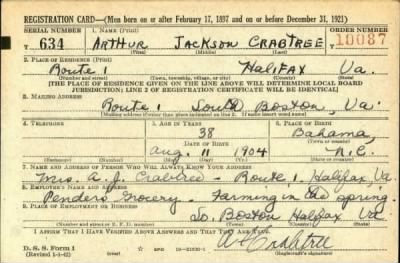 REGISTRATION CARD—(Men born on or after February 17, 1897 and on or before December 31, 1921)
SERIAL NUMBER 1. NAME (Print) ORDER NUMBER
T 634 ARTHUR JACKSON CRABTREE 10087
(First) (Middle) (Last)
2. PLACE OF RESIDENCE (Print)
Route 1 Halifax Va.
(Number and street) (Town, township, village, or city) (County) (State)
[THE PLACE OF RESIDENCE GIVEN ON THE LINE ABOVE WILL DETERMINE LOCAL BOARD
JURISDICTION; LINE 2 OF REGISTRATION CERTIFICATE WILL BE IDENTICAL]
3. MAILING ADDRESS
Route 1 South Boston, Va.
[Mailing address if other than place indicated on line 2. If same insert word same]
4. TELEPHONE 5. AGE IN YEARS 6. PLACE OF BIRTH
38 Bahama,
DATE OF BIRTH (Town or county)
Aug. 11 1904 N.C.
(Exchange) (Number) (Mo.) (Day) (Yr.) (State or country)
7. NAME AND ADDRESS OF PERSON WHO WILL ALWAYS KNOW YOUR ADDRESS
Mrs. A. J. Crabtree Route 1, Halifax, Va.
8. EMPLOYER'S NAME AND ADDRESS
Penders Grocery - Farming in the spring.
9. PLACE OF EMPLOYMENT OR BUSINESS
So. Boston Halifax Va.
(Number and street or R. F. D. number) (Town) (County) (State)
I AFFIRM THAT I HAVE VERIFIED ABOVE ANSWERS AND THAT THEY ARE TRUE.
D. S. S. Form 1
(Revised 1-1-42) (over)
A J Crabtree
(Registrant's signature)